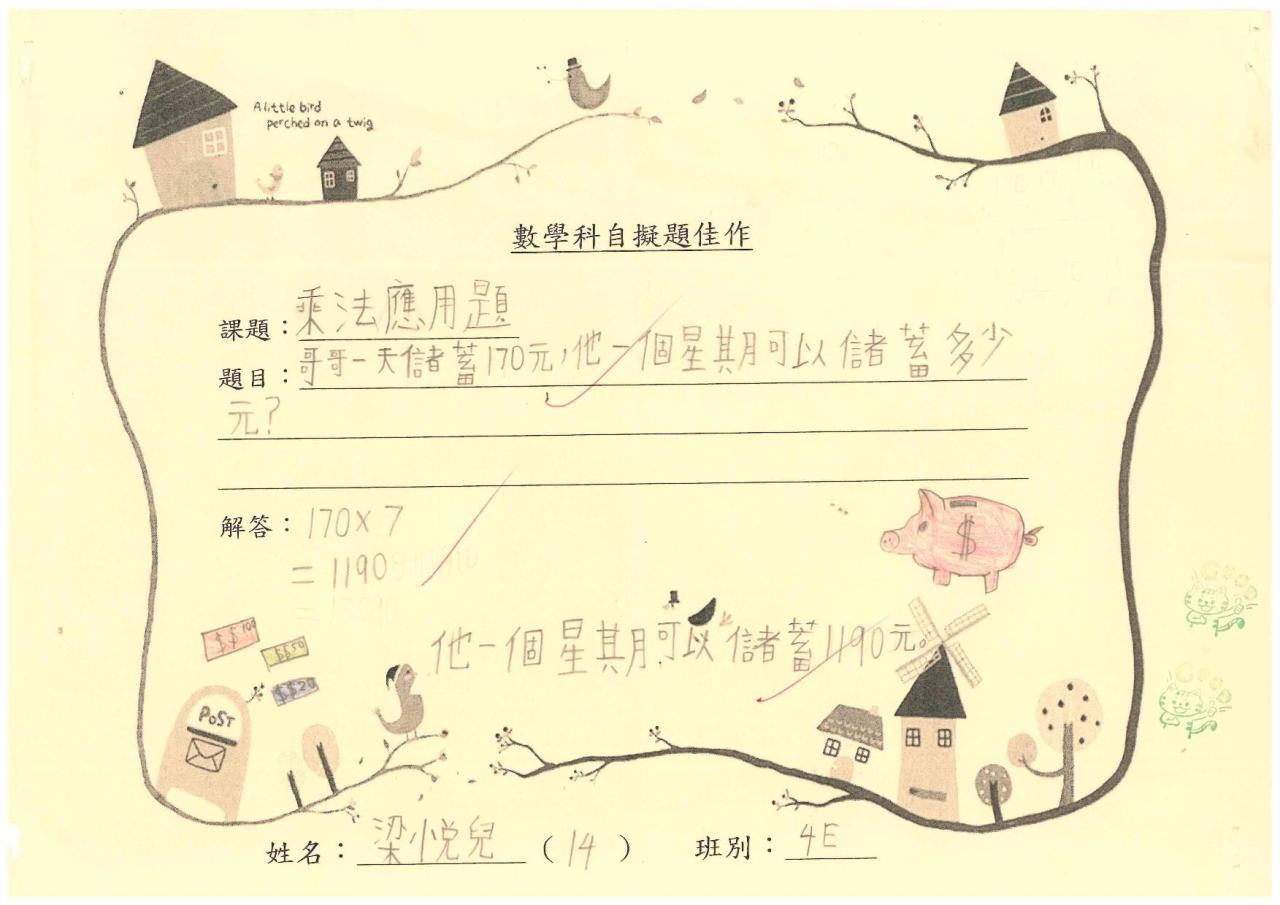 A little bird
perched on a twig
數學科自擬題佳作
課題：乘法應用題
題目：哥哥一天儲蓄170元，他一個星期可以儲蓄多少
元？
解答：170×7
=1190
$$100
$$50
$$20
$
他一個星期可以儲蓄1190元。
POST
姓名：梁悅兒（14） 班別：4E